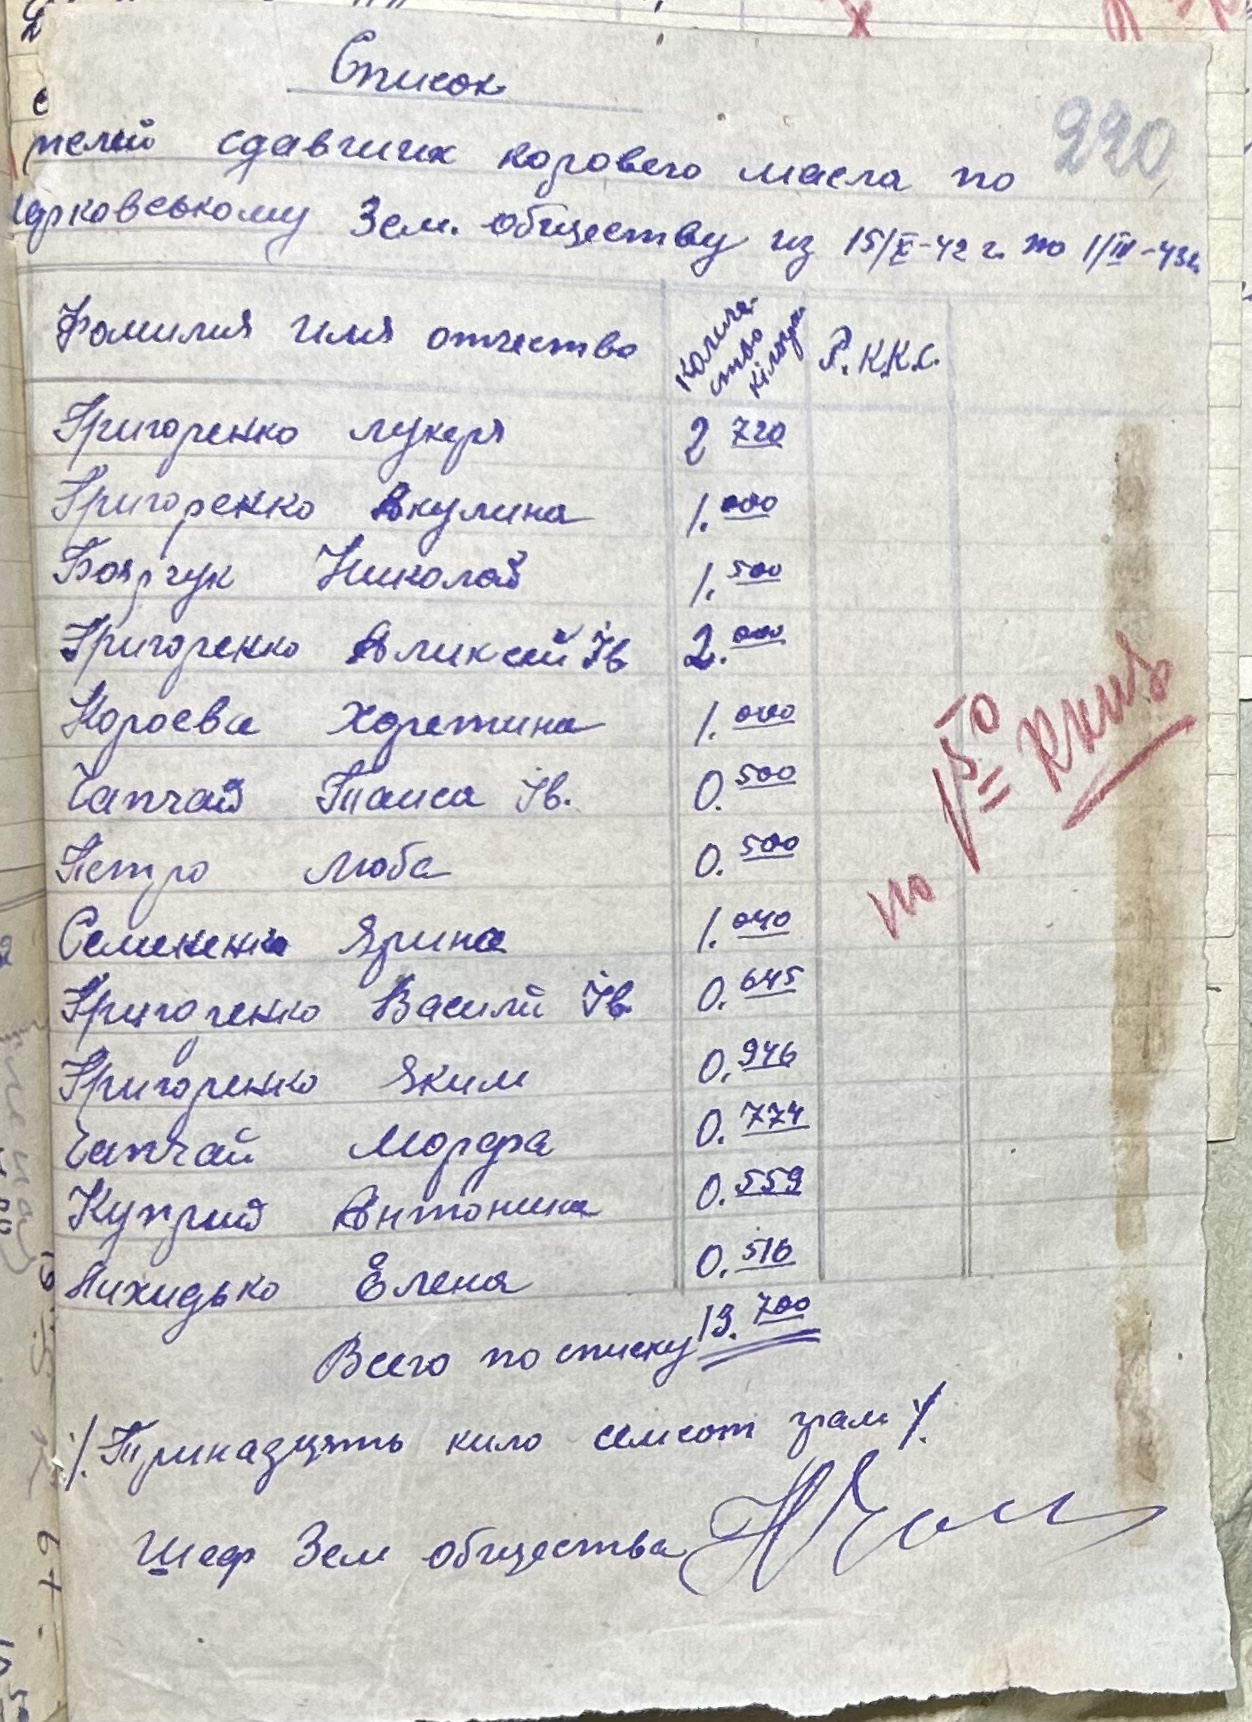 Список
220
телей сдавших коровего масла по
Зем. обществу из 15/X-42 г. по 1/III-43г.
Фамилия имя отчество Количе- Р.К.К.С.
ство
кілогрм
Григоренко Лукеря 2 720
Григоренко Акулина 1.000
Боярчук Николай 1.500
Григоренко Аликсей Ів 2.000
Короева Хоретина 1.000
Чапчай Таиса Ів. 0.500
Петро Люба 0.500
по 150 ккиц
Семененко Ярина 1.040
Григоренко Василий Ів 0.645
Григоренко Яким 0.946
Чапчай Морфа 0.774
Куприй Антонина 0.559
Лихидько Елена 0.516
Всего по списку 13.700
/. Тринадцять кило семсот грам /.
Шеф Зем общества